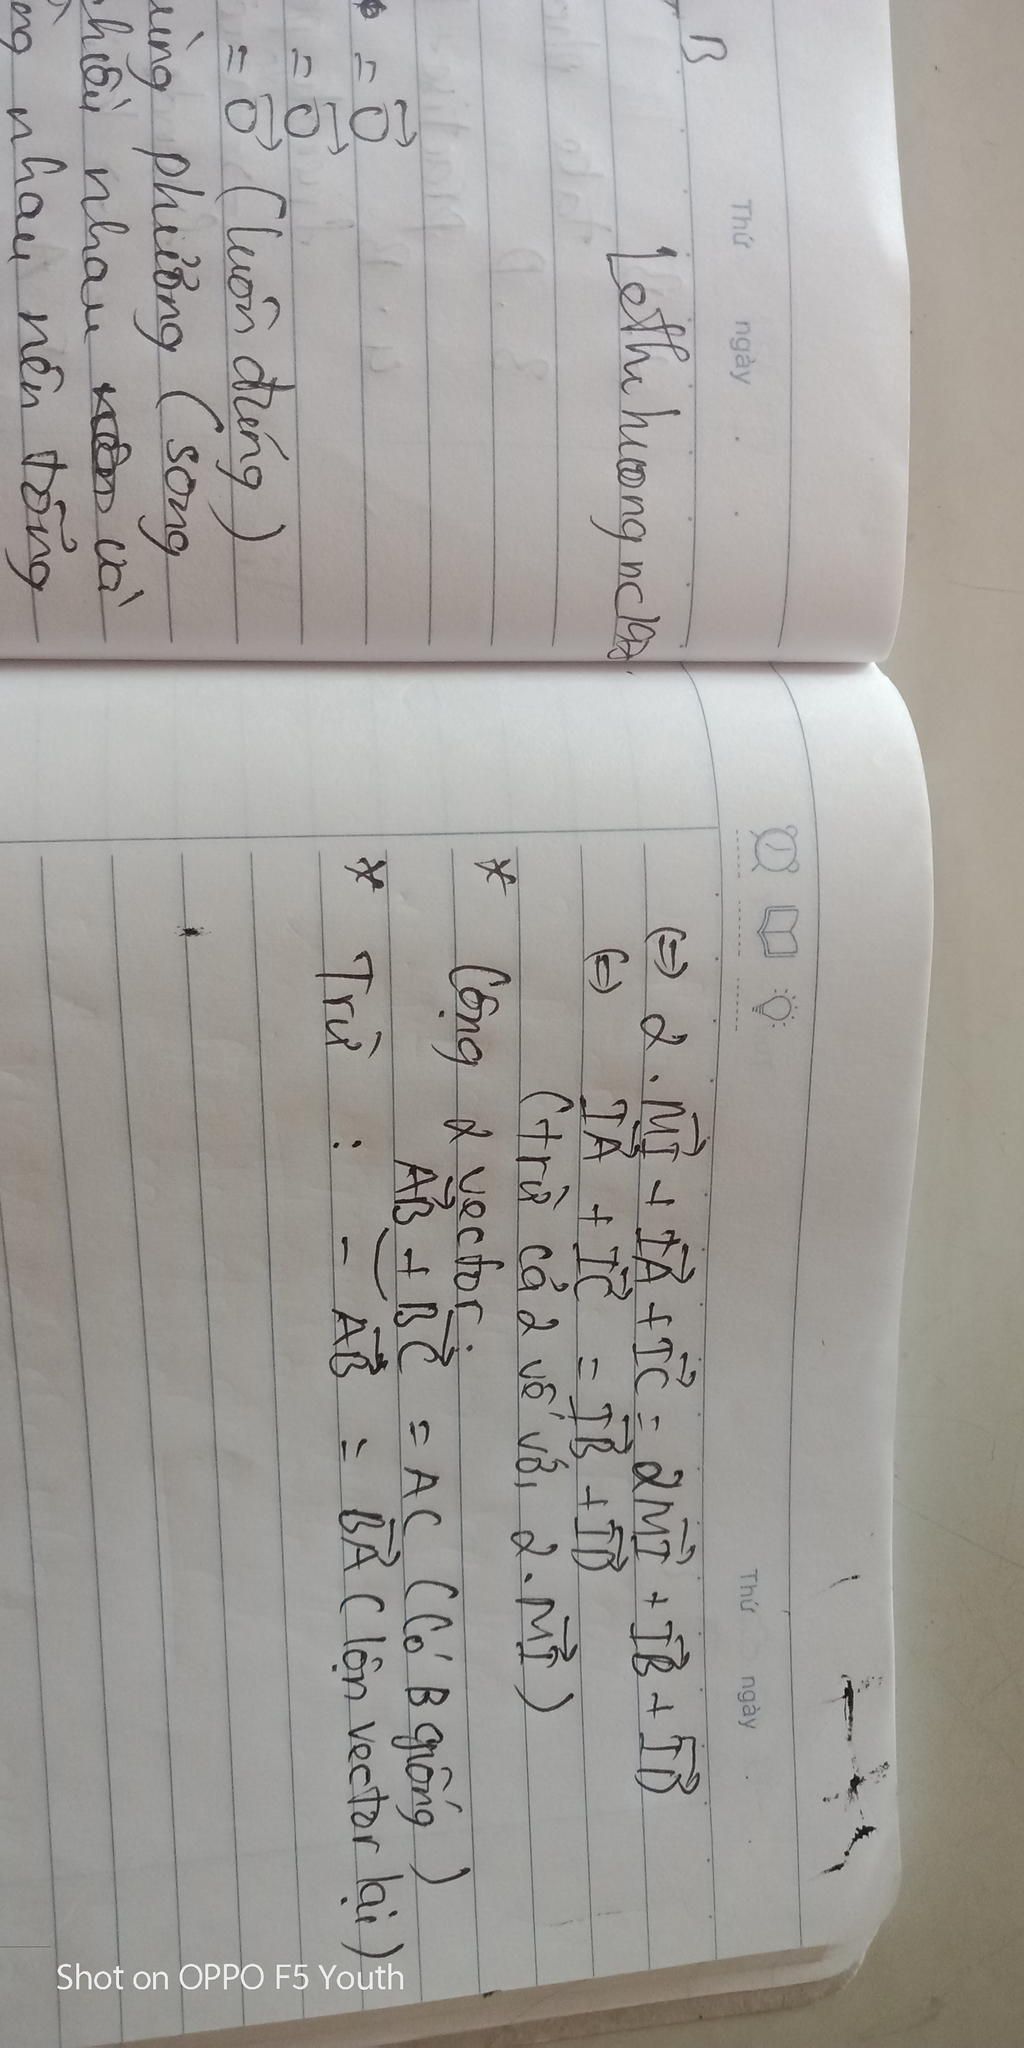 B
Thứ ngày
= 0⃗
= 0⃗
= 0⃗ (luôn đúng)
phương (song
nhau và
nhau nên tổng
Thứ ngày
(=) 2.MI⃗ + IA⃗ + IC⃗ = 2MI⃗ + IB⃗ + ID⃗
(=) IA⃗ + IC⃗ = IB⃗ + ID⃗
(trừ cả 2 vế với 2.MI⃗)
* Cộng 2 vector:
AB⃗ + BC⃗ = AC (Có B giống)
* Trừ : - AB⃗ = BA⃗ (lộn vector lại)
Shot on OPPO F5 Youth